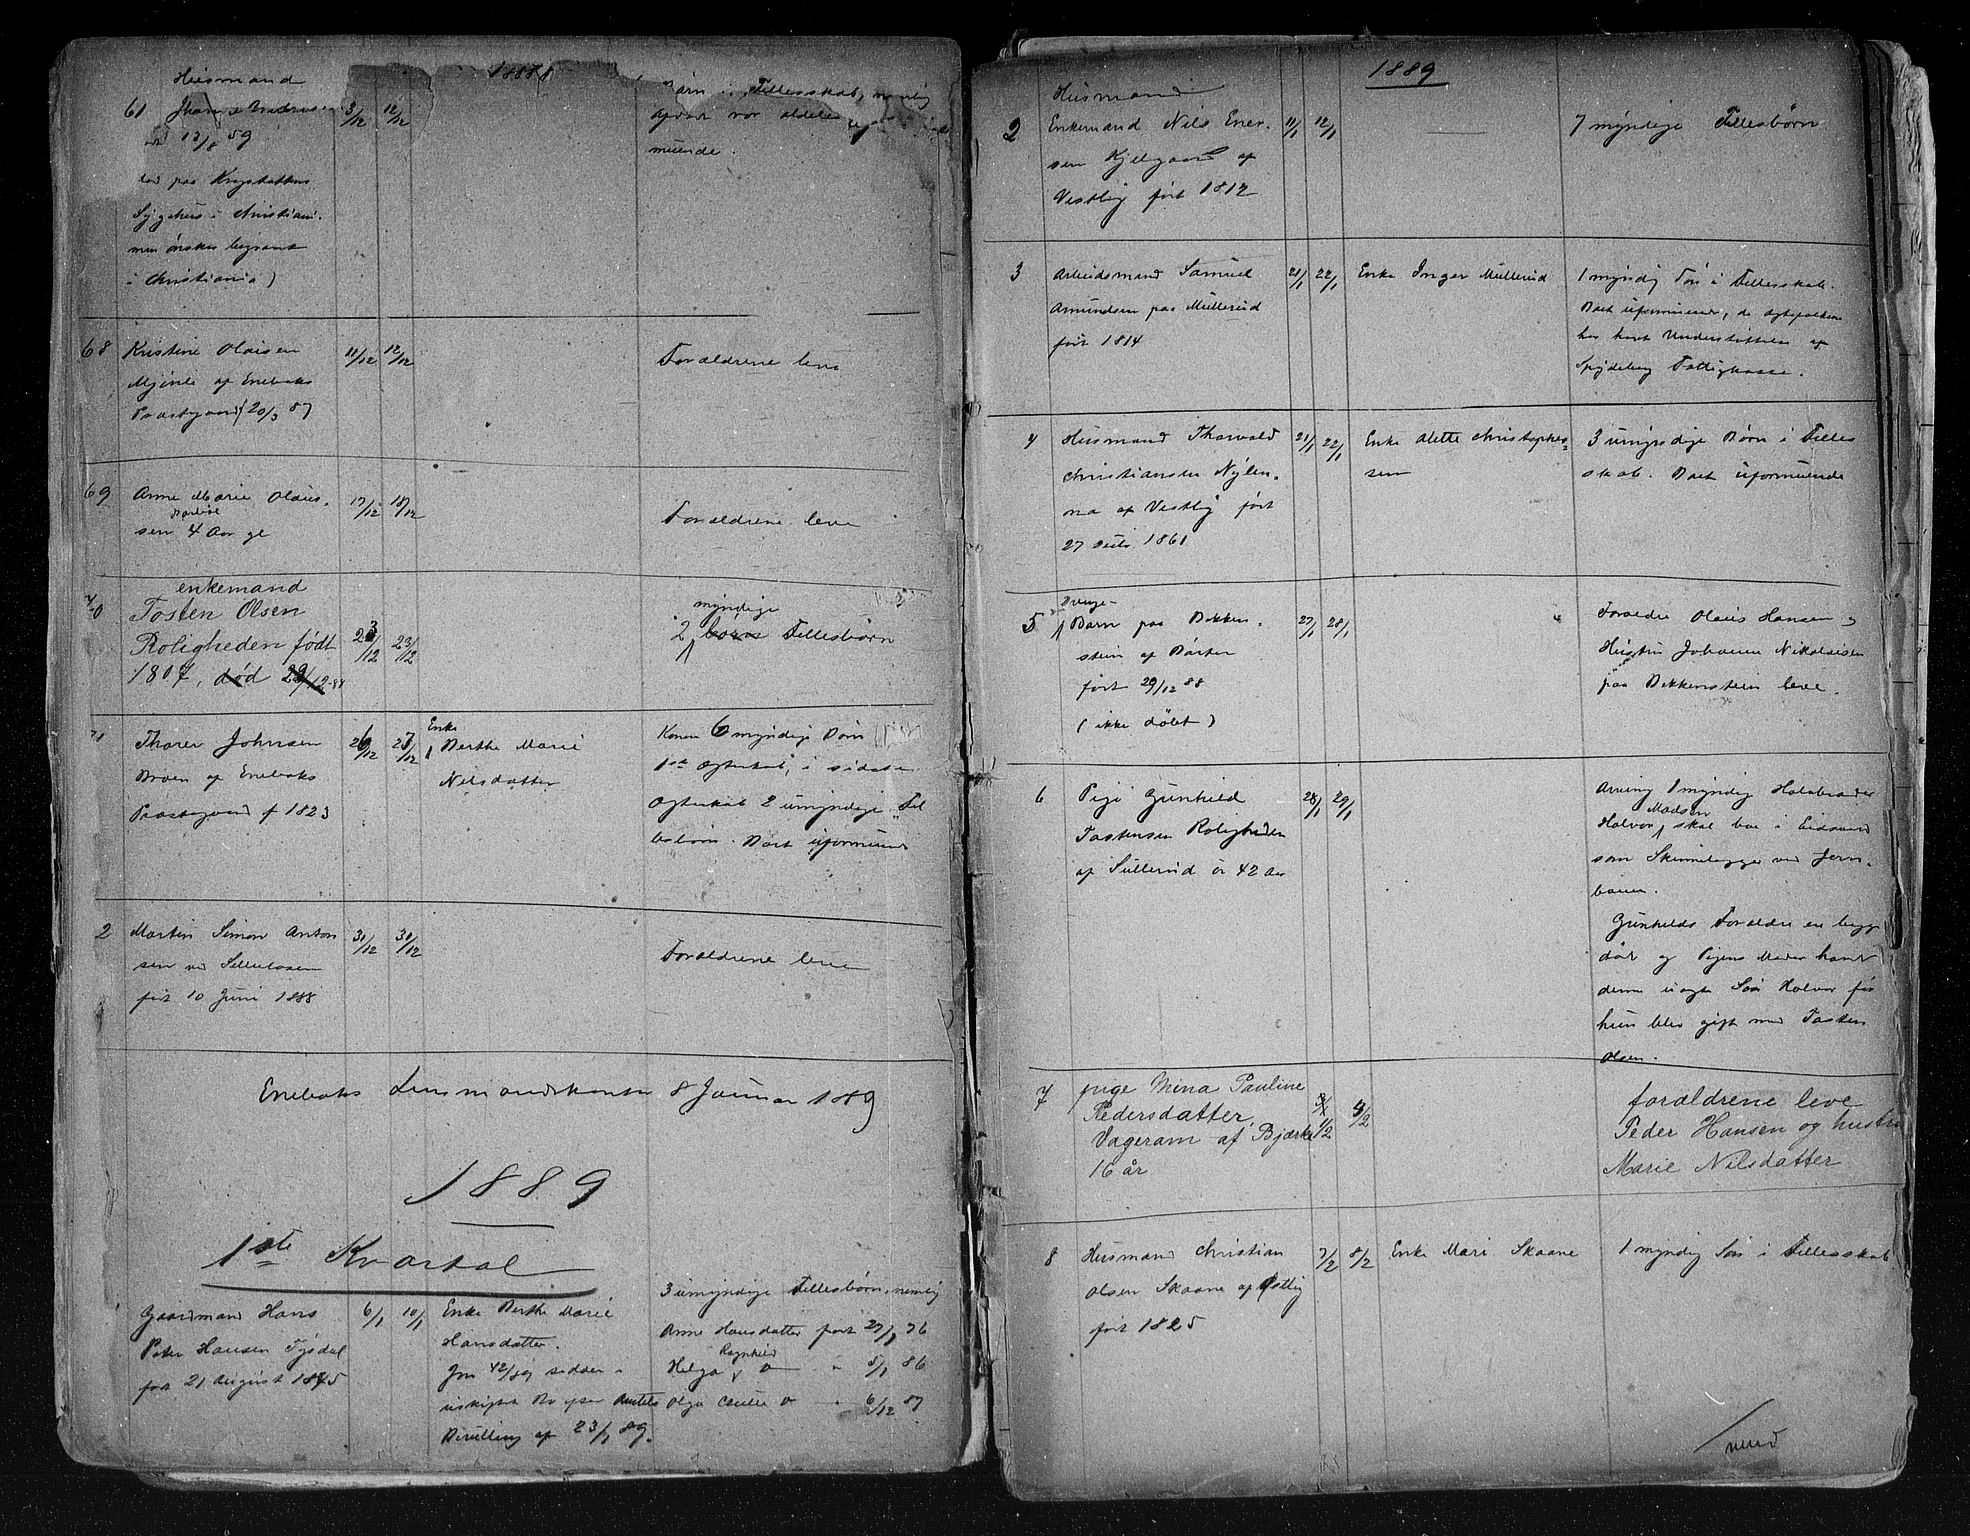 1888
Husmand
61
3/12 12/12
Børn i Fællesskab, nemlig
muende.
13/8 59
død paa Krigsskolens
Sygehus i Christiani.
men ønskes begravet
i Christiania)
68 Kristine Olaisen 11/12 12/12 Forældrene leve
af Enebaks
Præstegaard (20/3 87
69 Anne Marie Olaus- 17/12 18/12 Forældrene leve
sen 4 Aar gl
70 enkemand
Tosten Olsen
Roligheden født 23/12 23/12 2 myndige Fællesbørn
1807, død 22/12-88
71 Thorer Johnsen 26/12 27/12 Enke Berthe Marie Konen 6 myndige Børn
Nilsdatter
Braaten af Enebaks
1ste Ægteskab, i sidste
Præstegaard f 1823
Ægteskab 2 umyndige Fæl
lesbørn. Boet uformuende
2 Martin Simon Anton 31/12 31/12 Forældrene leve
sen
født 10 Juni 1888
Enebaks Lensmandskontor 8 Januar 1889
1889
1ste Kvartal
Gaardmand Hans 6/1 10/1 Enke Berthe Marie 3 umyndige Fællesbørn, nemlig
Peter Hansen Tysdal
Hansdatter.
Anne Hansdatter født 27/1 76
fød 21 August 1845
Jno 42/89 sidder i
Helga Ragnhild " 5/1 86
uskiftet Bo efter Amtets
Olga " 6/12 87
Bevilling af 23/1 89.
1889
2 Husmand
Enkemand Nils Ener- 11/1 12/1 — 7 myndige Fællesbørn
sen Kjelgaard af
Vestby født 1812
3 Arbeidsmand Samuel 21/1 22/1 Enke Inger Mullerud 1 myndig Søn i Fællesskab.
Amundsen paa Mullerud
født 1814
Boet uformuende, da Ægtefolkene
har havt Understøttelse af
Spydeberg Fattigkasse.
4 Husmand Thorvald 21/1 22/1 Enke Alette Christophers- 3 umyndige Børn i Fælles
Christiansen Nylen- sen skab. Boet uformuende
na af Vestby født
27 1861
5 Drenge-
Barn paa Bekken- 27/1 28/1 Forældre Olaus Hansen og
stein af Børter Hustru Johanne Nikolaisen
født 29/12 88 paa Bekkenstein leve.
(ikke døbt)
6 Pige Gunhild 28/1 29/1 Arving 1 myndig Halvbroder
Tostensen Roligheden Halvor Madsen skal bo i Eidsvold
af Sullerud er 42 Aar som Skinnelægger ved Jern-
banen.
Gunhilds Forældre er begge
død og Pigens Moder havde
denne uægte Søn Halvor før
hun blev gift med Tosten
Olsen.
7 pige Mina Pauline 1/2 4/2 forældrene leve
Pedersdatter, Peder Hansen og hustru
Vageram af Bjærke Marie Nilsdatter
16 år
8 Husmand Christian 7/2 8/2 Enke Mari Skaane 1 myndig Søn i Fællesskab
Olsen Skaane af Østby
født 1825